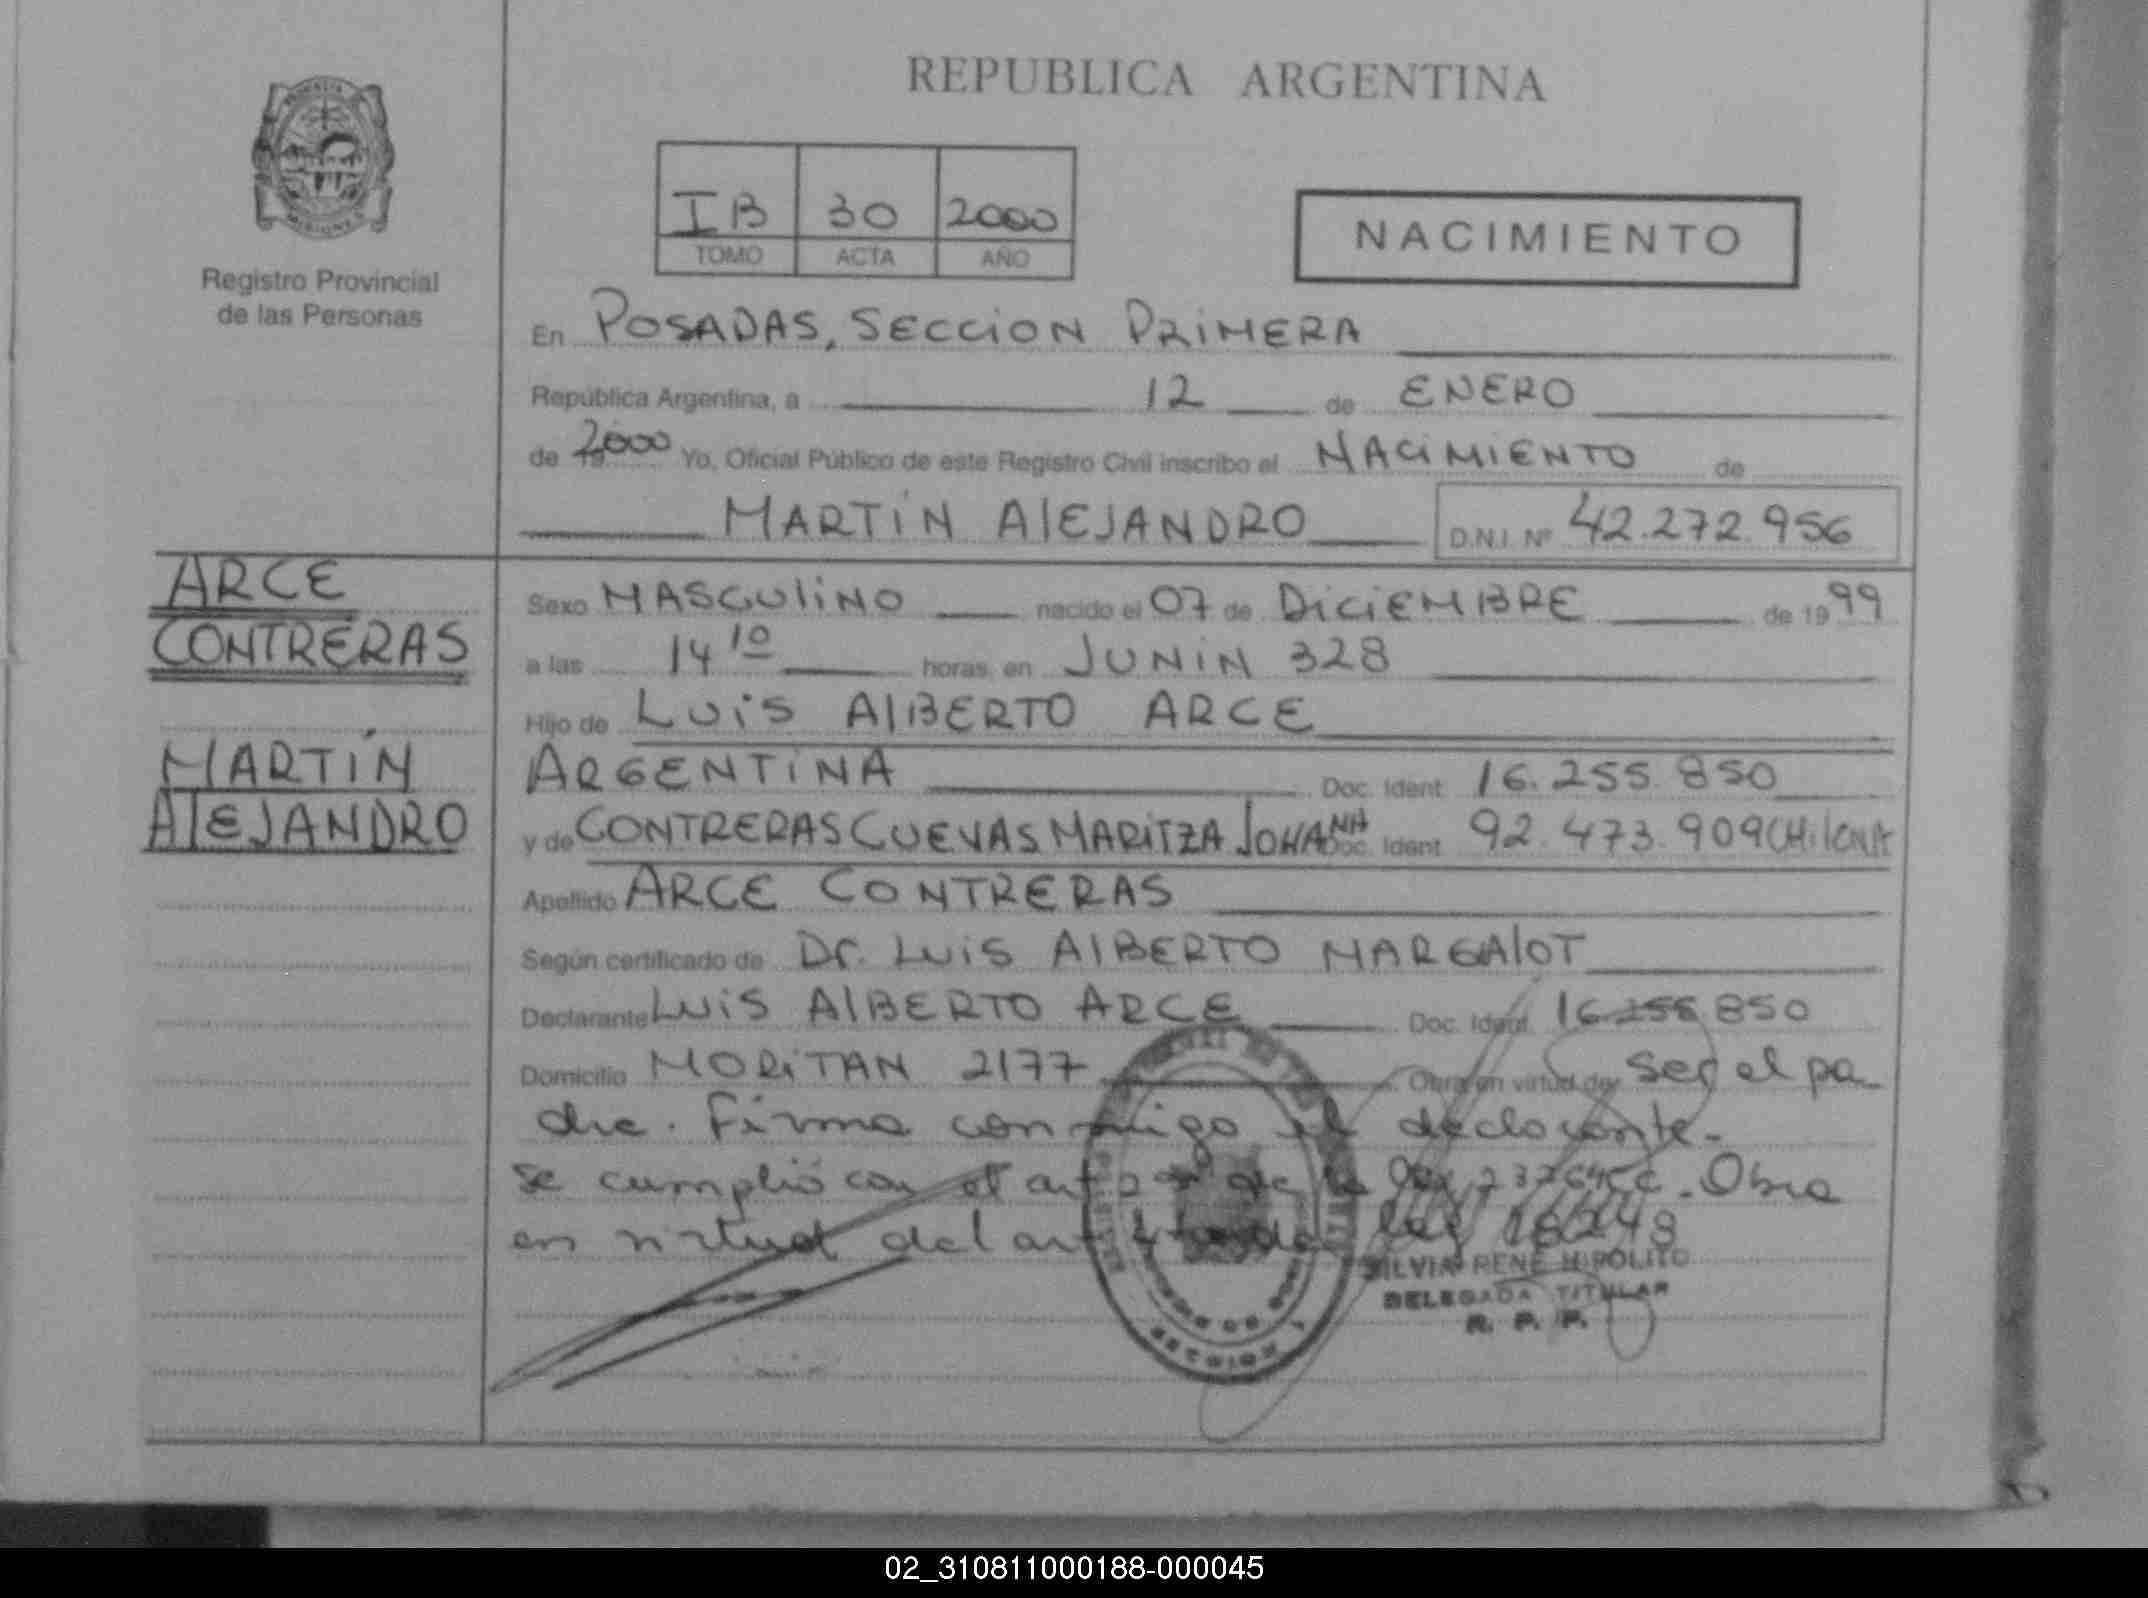 REPUBLICA ARGENTINA
IB 30 2000
TOMO ACTA AÑO
NACIMIENTO
Registro Provincial
de las Personas
En POSADAS, SECCION PRIMERA
República Argentina, a 12 de ENERO
de 2000 Yo, Oficial Público de este Registro Civil inscribo el NACIMIENTO de
MARTÍN AlEJANDRO D.N.I. Nº 42.272.956
ARCE
CONTRERAS
MARTÍN
AlEJANDRO
Sexo MASCUliNO nacido el 07 de DiCiEMBRE de 1999
a las 14 10 horas, en JUNIN 328
Hijo de LUiS AlBERTO ARCE
ARGENTINA Doc. Ident. 16.255.850
y de CONTRERAS CUEVAS MARITZA JOHANNA Doc. Ident. 92.473.909 CHilENA
Apellido ARCE CONTRERAS
Según certificado de Dr. LUIS AlBERTO MARGAlOT
Declarante LUIS AlBERTO ARCE Doc. Ident. 16.255.850
Domicilio MORITAN 2177 Obra en virtud de: ser el pa-
dre. Firma conmigo el declarante.-
se cumplió con el art de la ley Obra
en virtud del art ley 18248
SILVIA RENE HIPOLITO
DELEGADA TITULAR
R. P. P.
02_310811000188-000045